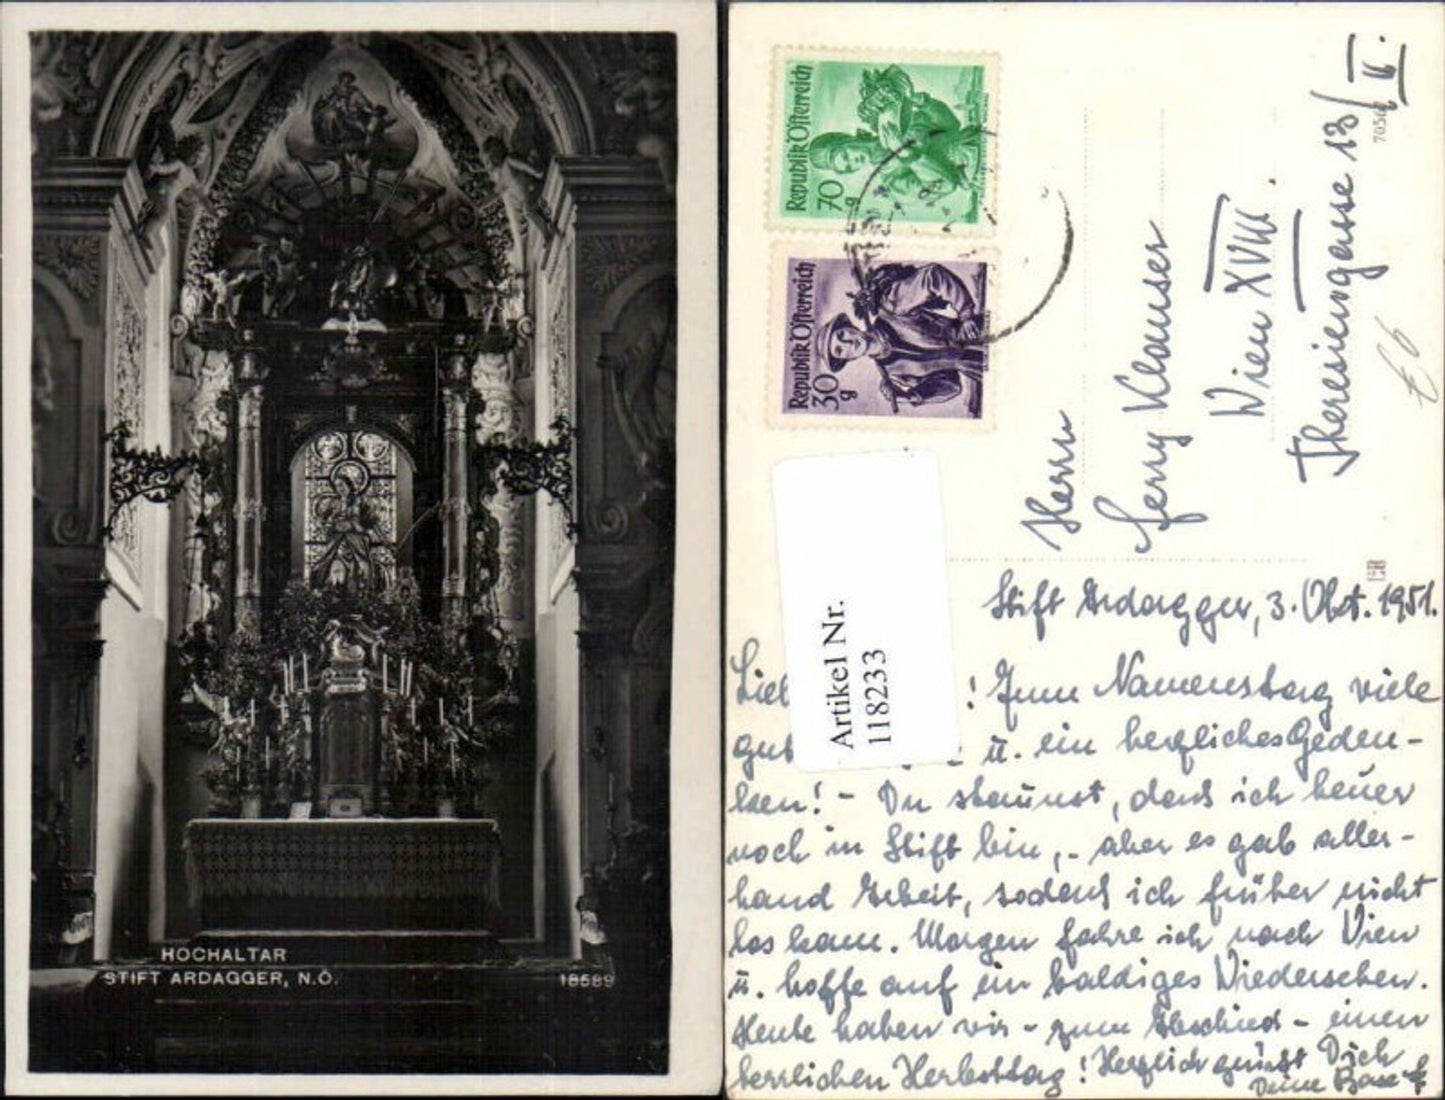 HOCHALTAR
STIFT ARDAGGER, N.Ö.
18589
Republik Österreich
70 g
Republik Österreich
30 g
Artikel Nr.
118233
Herrn
Ferry Klauser
Wien XVIII.
Theresiengasse 13/II.
7056
Stift Ardagger, 3. Okt. 1951.
! Zum Namenstag viele
u. ein herzliches Geden-
ken! - Du staunst, dass ich heuer
noch in Stift bin, - aber es gab aller-
hand Arbeit, sodass ich früher nicht
los kam. Morgen fahre ich nach Wien
u. hoffe auf ein baldiges Wiedersehen.
Heute haben wir - zum Abschied - einen
herrlichen Herbsttag! Herzlich grüsst Dich
Deine Base